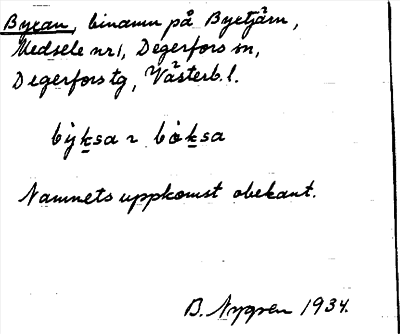 Byxan, binamn på Byetjärn,
Medsele nr 1, Degerfors sn,
Degerfors tg, Västerb. l.
bỳksa ~ bòksa
Namnets uppkomst obekant.
B. Nygren 1934.